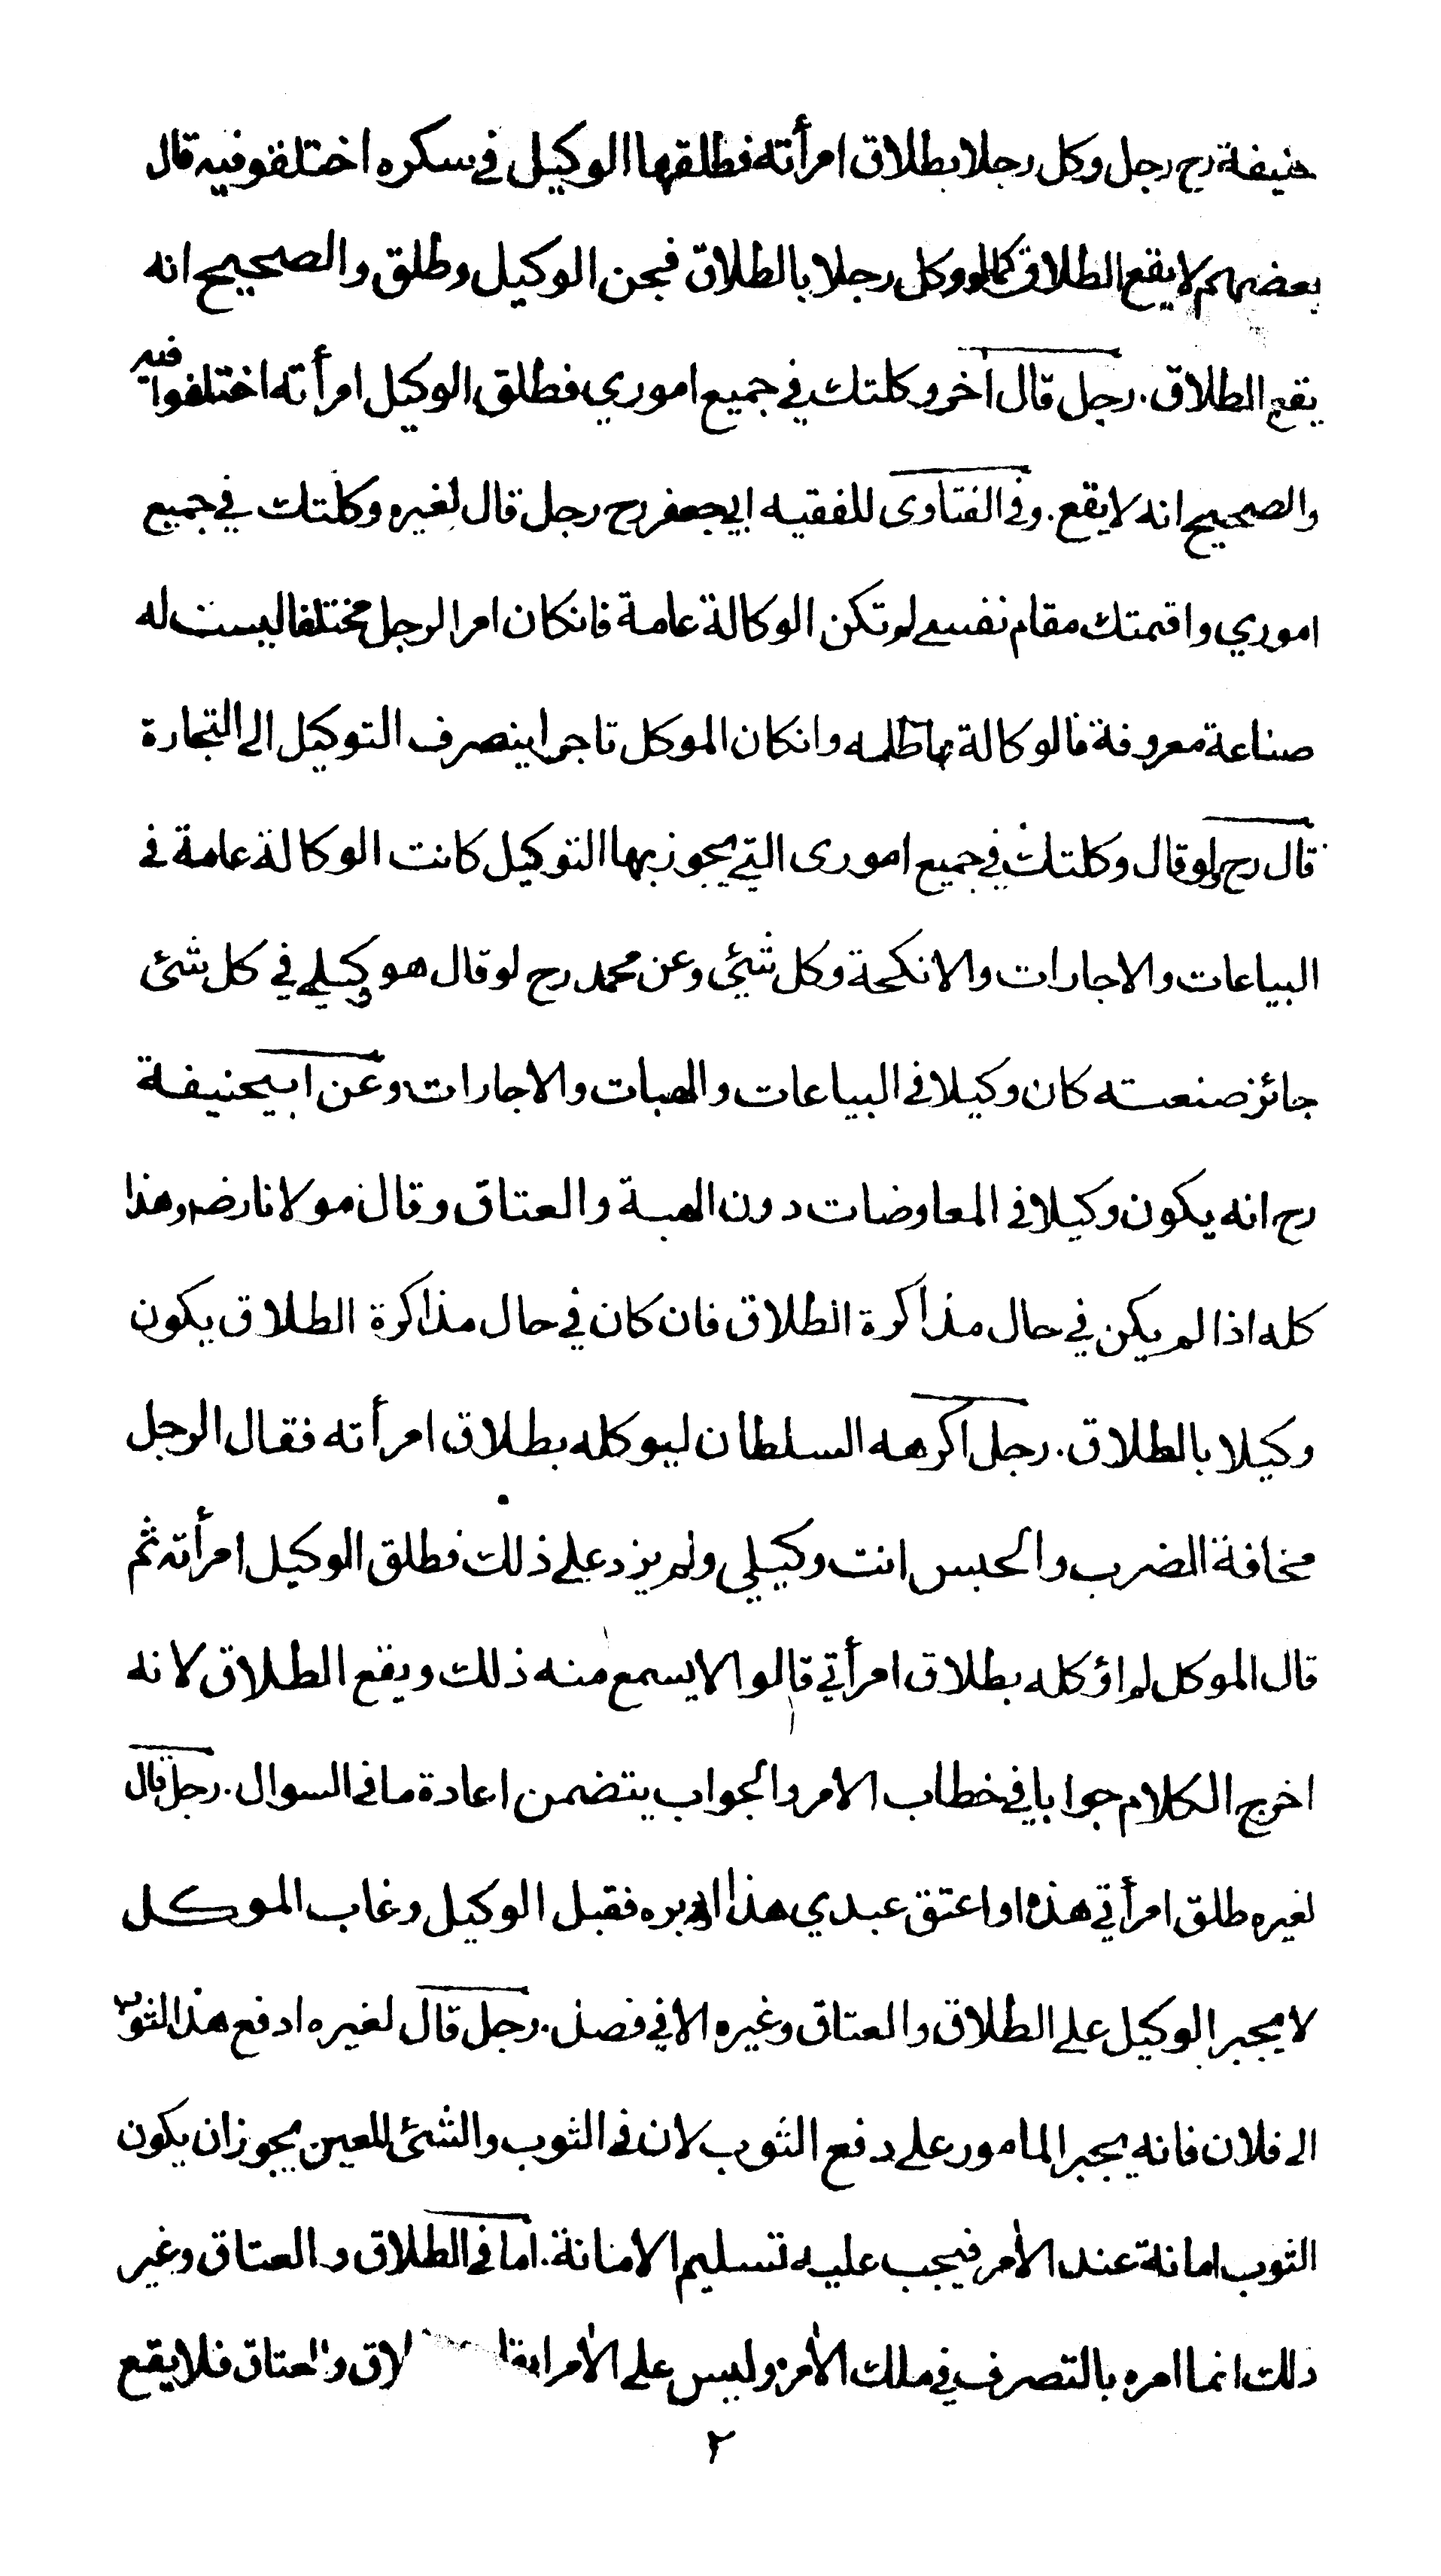 حنيفة رح رجل وكل رجلا بطلاق امرأته فطلقها الوكيل في سكره اختلفو فيه قال
بعضهم لا يقع الطلاق كمالو وكل رجلا بالطلاق فجن الوكيل وطلق والصحيح انه
يقع الطلاق. رجل قال آخر وكلتك في جميع اموري فطلق الوكيل امرأته اختلفوا فيه
والصحيح انه لا يقع. وفي الفتاوى للفقيه ابي جعفر رح رجل قال لغيره وكلتك في جميع
اموري واقمتك مقام نفسي لم تكن الوكالة عامة فانكان امر الرجل مختلفا ليست له
صناعة معروفة فالوكالة باطلة وانكان الموكل تاجرا ينصرف التوكيل الى التجارة
قال رح ولو قال وكلتك في جميع امورى التي يجوز بها التوكيل كانت الوكالة عامة في
البياعات والاجارات والانكحة وكل شيئ وعن محمد رح لو قال هو وكيلي في كل شئ
جائز صنعته كان وكيلا في البياعات والهبات والاجارات وعن ابيحنيفة
رح انه يكون وكيلا في المعاوضات دون الهبة والعتاق وقال مولانا رضه وهذا
كله اذا لم يكن في حال مذاكرة الطلاق فان كان في حال مذاكرة الطلاق يكون
وكيلا بالطلاق. رجل اكرهه السلطان ليوكله بطلاق امرأته فقال الرجل
مخافة الضرب والحبس انت وكيلي ولم يزد على ذلك فطلق الوكيل امرأته ثم
قال الموكل لم اؤكله بطلاق امرأتي قالوا لا يسمع منه ذلك ويقع الطلاق لانه
اخرج الكلام جوابا في خطاب الامر والجواب يتضمن اعادة ما في السوال. رجل قال
لغيره طلق امرأتي هذه او اعتق عبدي هذا او دبره فقبل الوكيل وغاب الموكل
لا يجبر الوكيل على الطلاق والعتاق وغيره الا في فصل. رجل قال لغيره ادفع هذا الثوب
الى فلان فانه يجبر المامور على دفع الثوب لان في الثوب والشئ المعين يجوز ان يكون
الثوب امانة عند الآمر فيجب عليه تسليم الامانة. اما في الطلاق والعتاق وغير
ذلك انما امره بالتصرف في ملك الآمر وليس على الآمر ايقا لاق والعتاق فلا يقع
٢